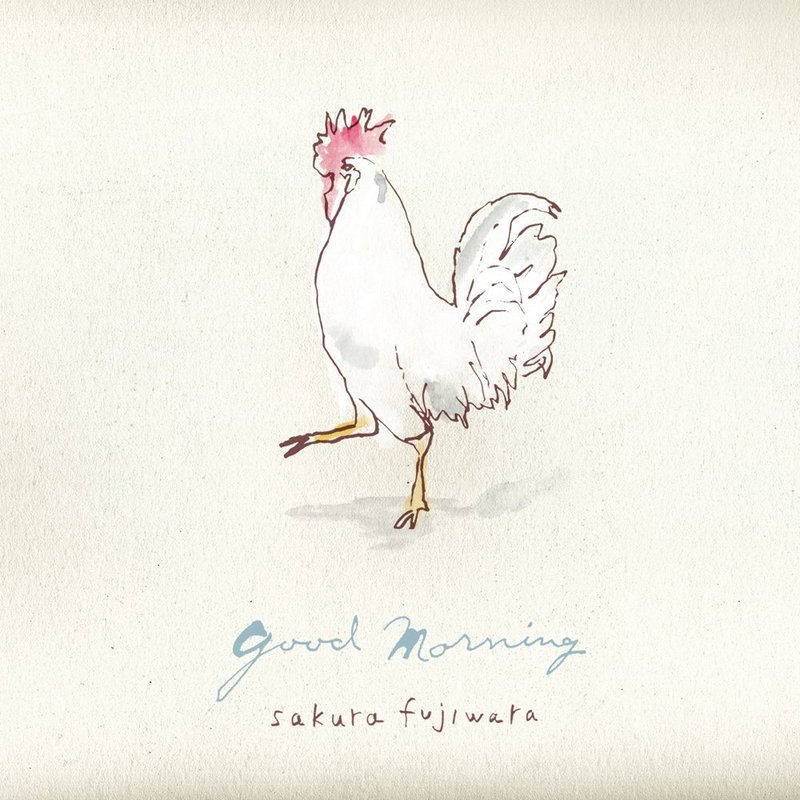 Good Morning
sakura fujiwara